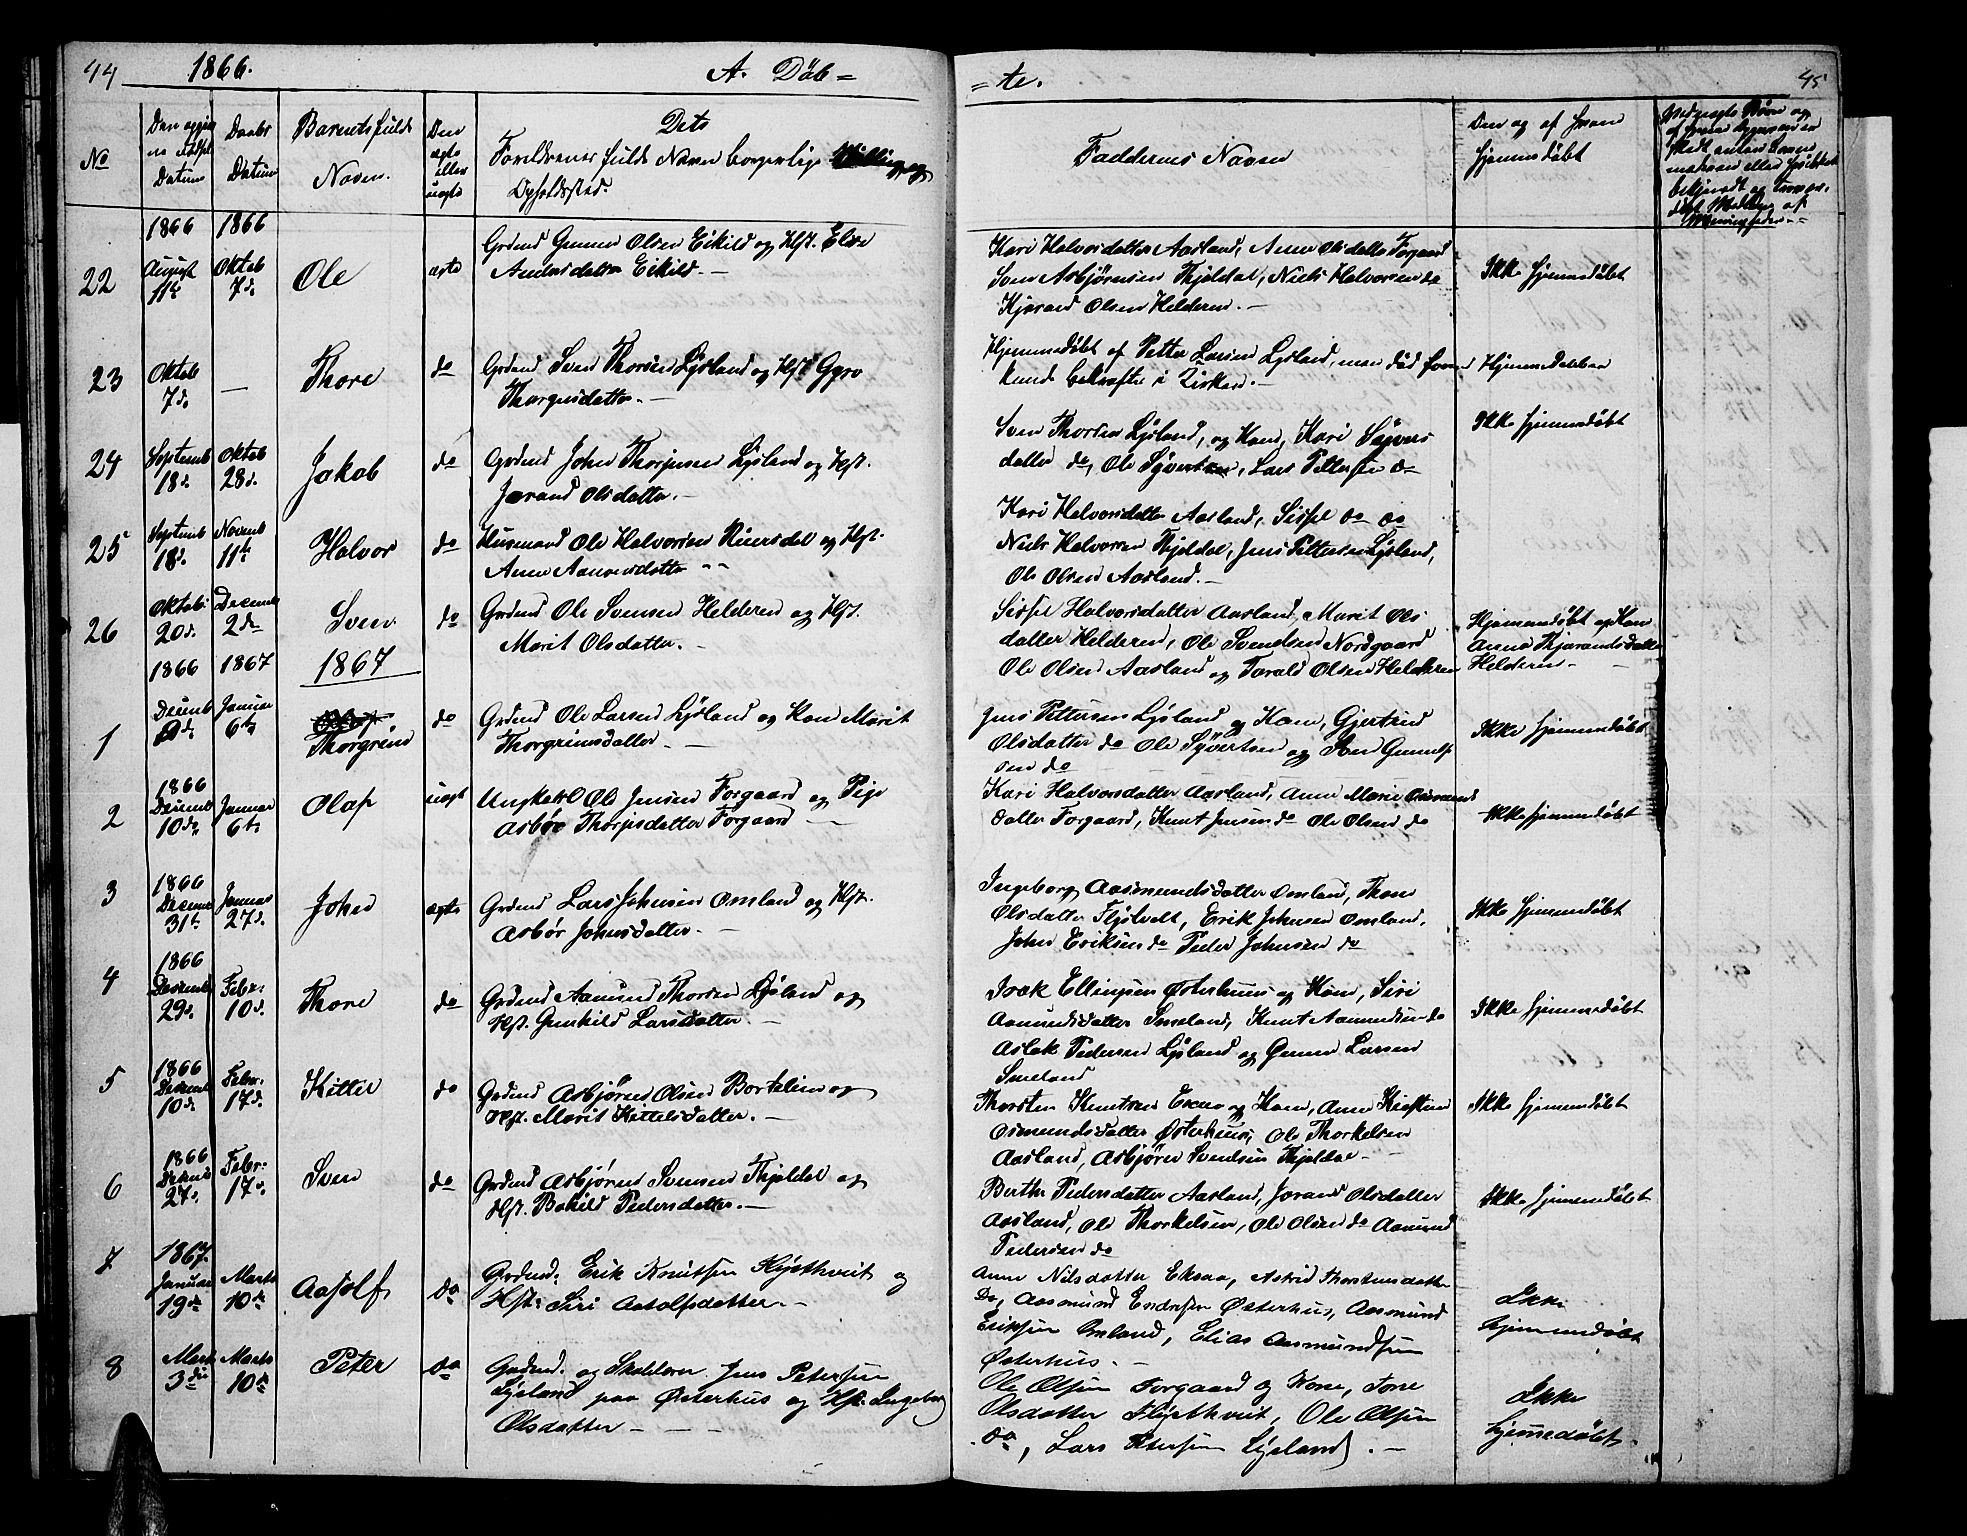 44
1866.
A. Döb =
= te.
45
No
Den opgivne Fødsels Datum
Daabs Datum
Barnets fulde Navn.
Den ægte eller uægte
Dets
Forældrenes fulde Navne borgerlige Stilling og
Opholdssted.
Faddernes Navne
Om og af hvem
hjemmedöbt
1866 1866
22 August 11te Oktob 7de Ole ægte
Grdmd Gunnar Olsen Eikild og Hst. Else
Andersdatter Eikild. —
Kari Halvorsdatter Aasland, Anne Olsdatter Forgaard
Sven Asbjørnsen Kjeldal, Niels Halvorsen do
Kjærand Olsen Helderen. —
Ikke hjemmedöbt
23 Oktob 7de — Thore do
Grdmd Sven Thorsen Lysland og Hst Gyro
Thorgusdatter. —
Hjemmedöbt af Petter Larsen Lysland, men död forend
kunde bekræftes i Kirken. —
Hjemmedöbt
24 Septemb 18de Oktob 28de Jakob do
Grdmd John Thorjusen Lysland og Hst.
Jørand Olsdatter. —
Sven Thorsen Lysland, og Kone, Kari Syvers
datter do, Ole Syvertsen, Lars Pettersen do
Ikke hjemmedöbt
25 Septemb 18de Novemb 11te Halvor do
Husmand Ole Halvorsen Riversdal og Hst.
Anne Aanensdatter
Kari Halvorsdatter Aasland, Sissel do do
Niels Halvorsen Kjeldal, Jens Pettersen Lysland,
Ole Olsen Aasland. —
26 Oktob: 20de Decemb 2den Sven do
Grdmd Ole Svensen Helderen og Hst.
Marit Olsdatter. —
Sissel Halvorsdatter Aasland, Marit Ols
datter Helderen, Ole Svendsen Nordgaard
Ole Olsen Aasland og Tarald Olsen Helderen
Hjemmedöbt af Kone
Anne Kjærandsdatter
Helderen —
1866 1867 1867
1 Decemb 2de Januar 6te Thorgrim do
Grdmd Ole Larsen Lysland og Kone Marit
Thorgrimsdatter. —
Jens Pettersen Lysland og Kone, Gjertrud
Olsdatter do Ole Syvertsen og Gunnulf
sen do
Ikke hjemmedöbt
1866
2 Decemb 10de Januar 6te Olaf uægt
Ungkarl Ole Jensen Forgaard og Pige
Asbør Thorjusdatter Forgaard —
Kari Halvorsdatter Aasland, Anne Marie Osmunds
datter Forgaard, Knut Jensen do Ole Olsen do
Ikke hjemmedöbt
1866
3 Decemb 31te Januar 27de John ægte
Grdmd Lars Johnsen Omland og Hst.
Asbør Johnsdatter. —
Ingeborg Aasmundsdatter Omland, Thone
Olsdatter Fljotvelt, Erik Johnsen Omland,
John Eriksen do Peder Johnsen do
Ikke hjemmedöbt
1866
4 Decemb 29de Febr: 10de Thore do
Grdmd Aamund Thorsen Lysland og
Hst. Gunhild Larsdatter. —
Isak Ellingsen Østerhuus og Kone, Siri
Aamundsdatter Smeland, Knut Aamundsen do
Aslak Pedersen Lysland og Gunnar Larsen
Smeland
Ikke hjemmedöbt
1866
5 Decemb 10de Febr: 17de Kittel do
Grdmd Asbjørn Olsen Bortelien og
Hst. Marit Kittelsdatter. —
Thorsten Knutsen Eksaa og Kone, Anne Kirstine
Osmundsdatter Østerhuus, Ole Thorkelsen
Aasland, Asbjørn Svendsen Kjeldal —
Ikke hjemmedöbt
1866
6 Decemb 27de Febr: 17de Sven do
Grdmd Asbjørn Svensen Kjeldal og
Hst. Bohild Pedersdatter. —
Berthe Pedersdatter Aasland, Jorand Olsdatter
Aasland, Ole Thorkelsen, Ole Olsen do Aamund
Pedersen do
Ikke hjemmedöbt
1867.
7 Januar 19de Marts 10de Aasolf do
Grdmd. Erik Knutsen Fljothveit og
Hst: Siri Aasolfsdatter. —
Anne Nilsdatter Eksaa, Astrid Thorstensdatter
Do, Aasmund Endresen Østerhus, Aasmund
Eriksen Omland, Elias Aasmundsen
Østerhus. —
Ikke
hjemmedöbt
8 Marts 3die Marts 10de Peter do
Grdmd. og Skolelærer Jens Petersen
Lysland paa Østerhus og Hst. Ingeborg
Olsdatter — — —
Ole Olsen Forgaard og Kone, Tone
Olsdatter Fljothveit, Ole Olsen
do, Lars Petersen Lysland. —
Ikke
hjemmedöbt.